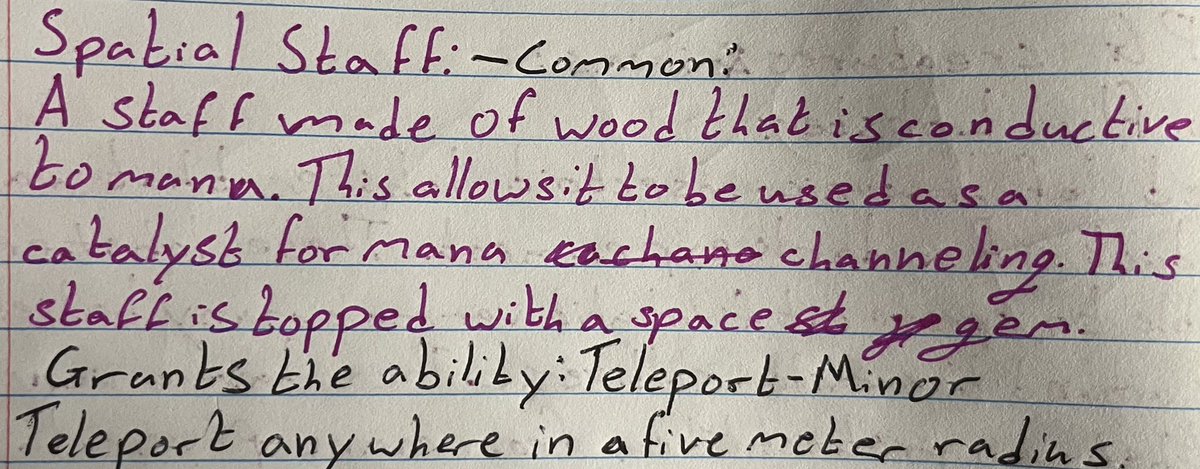 Spatial Staff: - Common:
A staff made of wood that is conductive
to mana. This allows it to be used as a
catalyst for mana channeling. This
staff is topped with a space gem.
Grants the ability: Teleport - Minor
Teleport anywhere in a five meter radius.